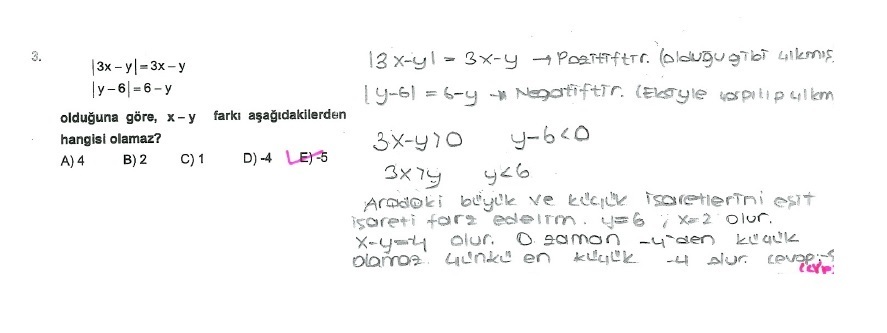 3.
|3x – y|=3x – y
|y – 6|=6 – y
olduğuna göre, x – y farkı aşağıdakilerden
hangisi olamaz?
A) 4 B) 2 C) 1 D) -4 E) -5
|3x-y| = 3x-y → Pozitiftir. (olduğu gibi çıkmış.
|y-6| = 6-y → Negatiftir. (Eksiyle çarpılıp çıkm
3x-y>0 y-6<0
3x>y y<6
Aradaki büyük ve küçük işaretlerini eşit
işareti farz edelim. y=6, x=2 olur.
x-y=-4 olur. O zaman -4'den küçük
olamaz. Çünkü en küçük -4 olur. cevap:-5